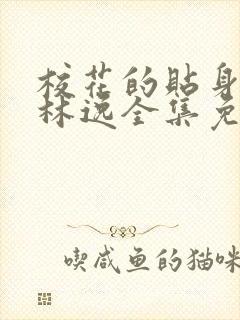 校花的贴身
林逸全集免
喫咸鱼的猫咪